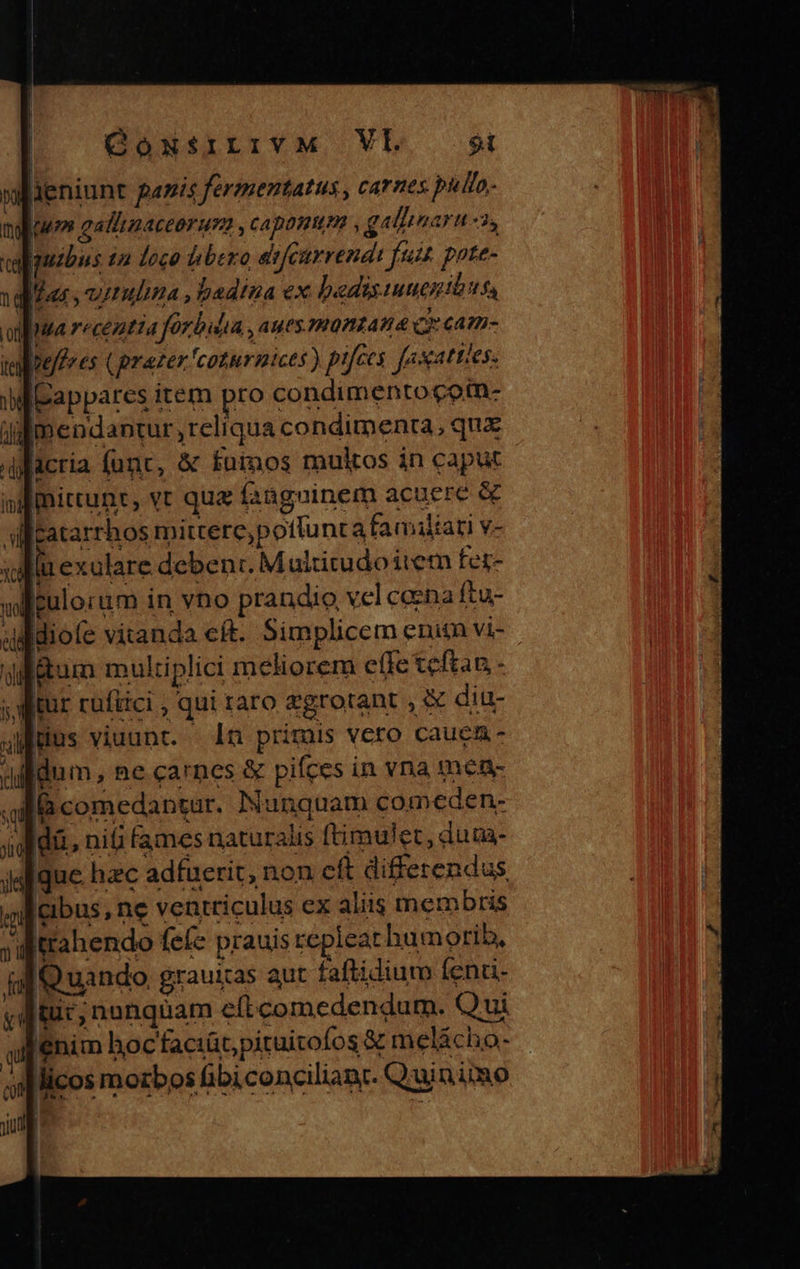 CONSILIVM VI. 91
ueniunt panis fermentatus, carnes pullo-
rum gallinaceorum, caponum, gallinarū
quibus in loco libero discurrendi fuit pote-
stas, vitulina, hædina ex hædis iuuenibus,
oua recentia sorbilia, aues montanæ & cam-
pestres (præter coturnices) pisces saxatiles.
Cappares item pro condimento com-
mendantur, reliqua condimenta, quæ
acria sunt, & fumos multos in caput
mittunt, vt quæ sanguinem acuere &
catarrhos mittere, possunt a familiari v-
su exulare debent. Multitudo item fer-
culorum in vno prandio vel cœna stu-
diose vitanda est. Simplicem enim vi-
ctum multiplici meliorem esse testan-
tur rustici, qui raro ægrotant, & diu-
tius viuunt. In primis vero cauen-
dum, ne carnes & pisces in vna men-
sa comedantur. Nunquam comeden-
dū, nisi fames naturalis stimulet, dum-
que hæc adfuerit, non est differendus
cibus, ne ventriculus ex aliis membris
trahendo sese prauis repleat humorib,
Quando grauitas aut fastidium senti-
tur, nunquam est comedendum. Qui
enim hoc faciūt, pituitosos & melācho-
licos morbos sibi conciliant. Quinimo